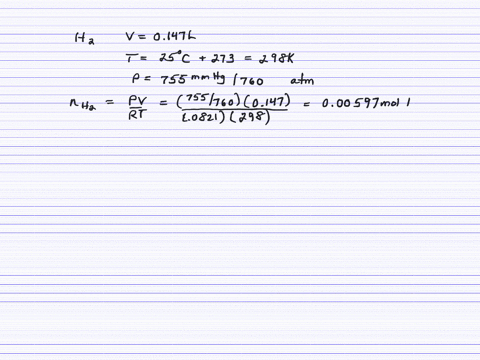 H₂ V = 0.147L
T = 25°C + 273 = 298K
P = 755 mmHg / 760 atm
nH₂ = PV/RT = (755/760)(0.147)/(.0821)(298) = 0.00597 mol